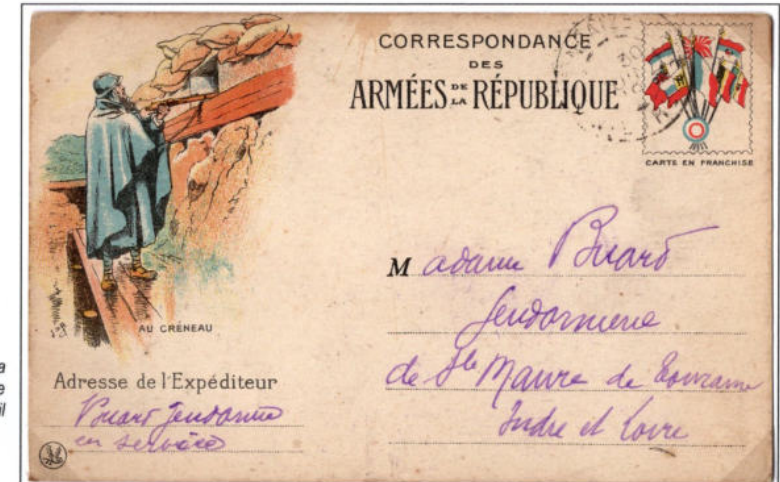 CORRESPONDANCE
DES
ARMÉES DE LA RÉPUBLIQUE
CARTE EN FRANCHISE
AU CRÉNEAU
Madame
Gendarmerie
de Ste Maure de Touraine
Indre et Loire
Adresse de l'Expéditeur
Gendarme
en service
a
e
il